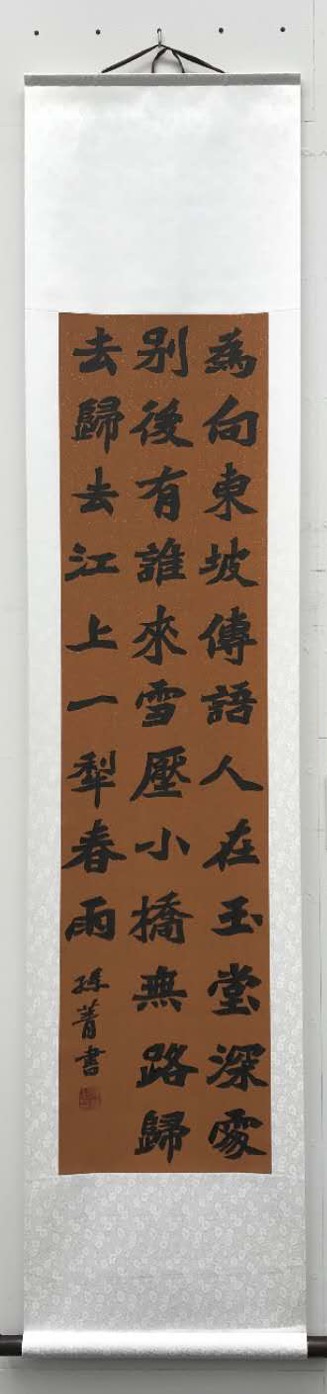 為向東坡傳語人在玉堂深處
别後有誰來雪壓小橋無路歸
去歸去江上一犁春雨
孫菁書